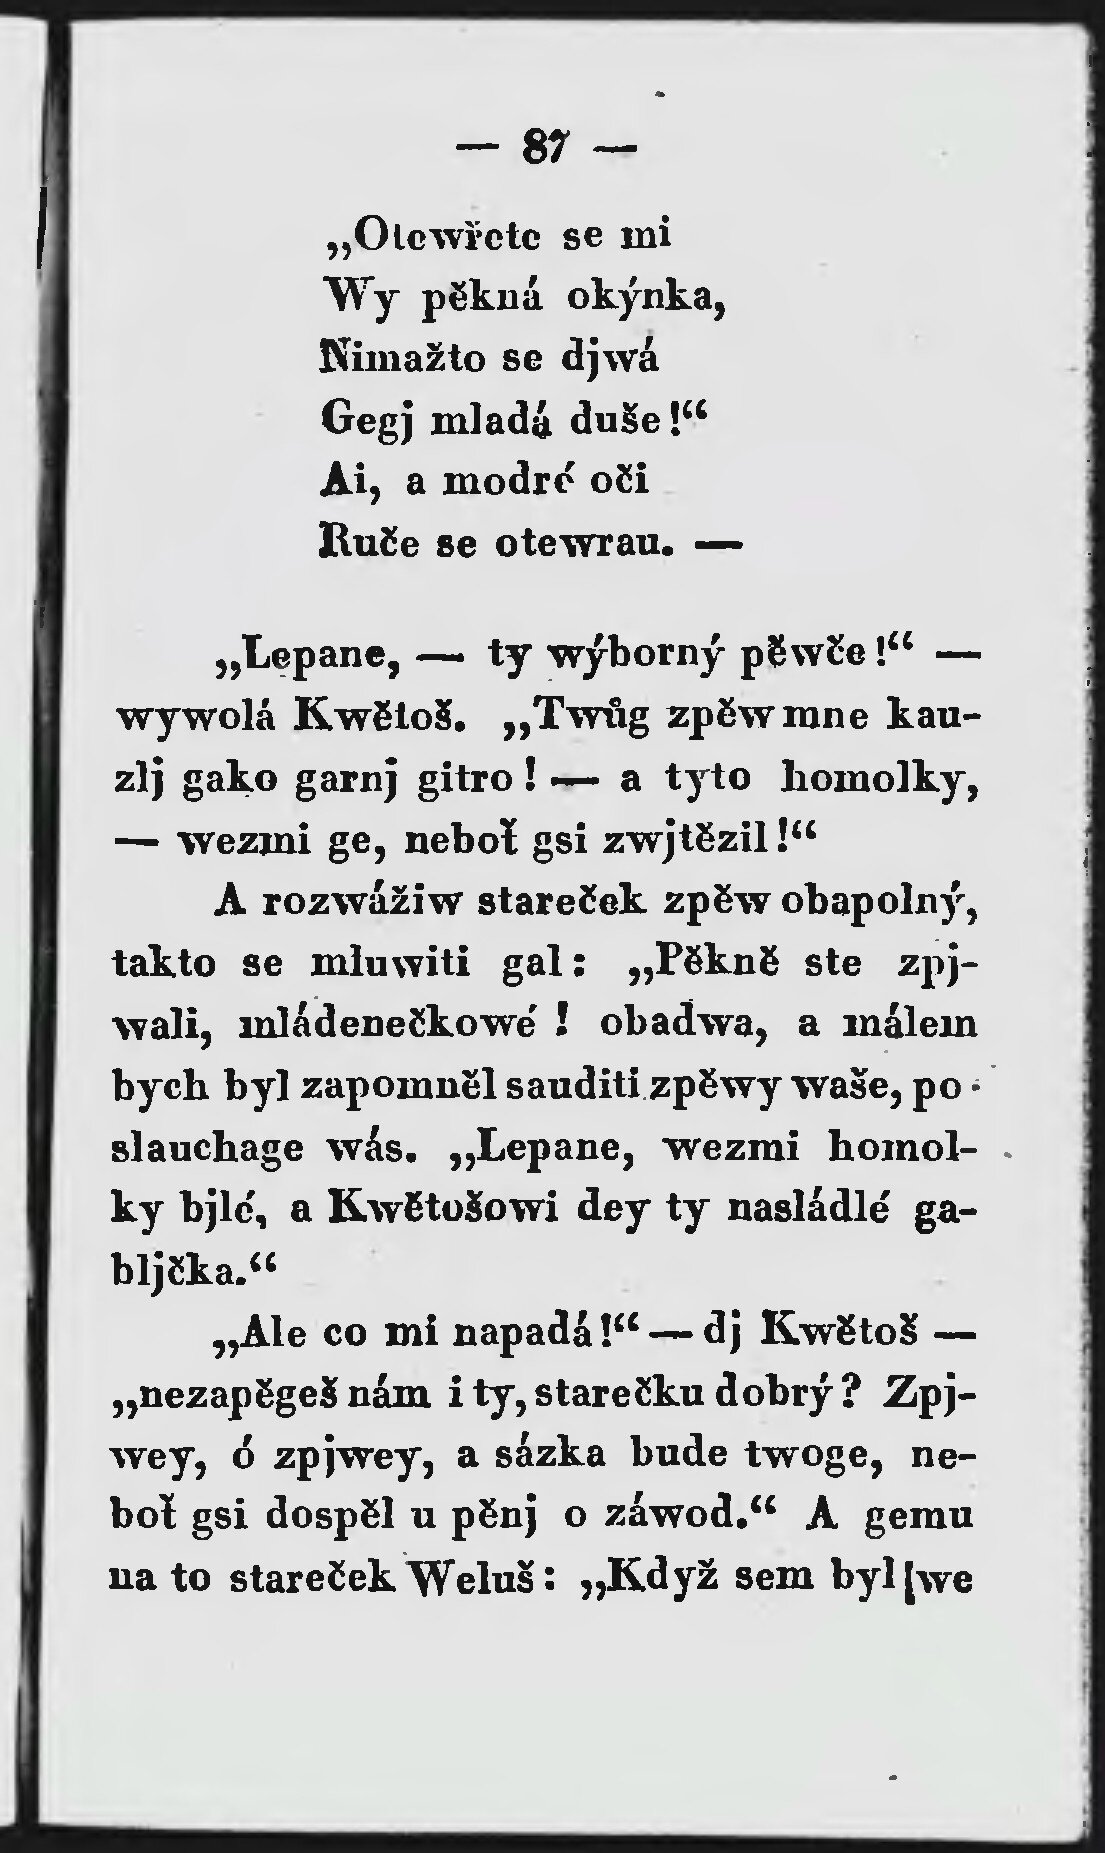 — 87 —
„Otewřete se mi
Wy pěkná okýnka,
Nimažto se djwá
Gegj mladá duše!“
Ai, a modré oči
Ruče se otewrau. —
„Lepane, — ty wýborný pěwče!“ —
wywolá Kwětoš. „Twůg zpěw mne kau-
zlj gako garnj gitro! — a tyto homolky,
— wezmi ge, neboť gsi zwjtězil!“
A rozwážiw stareček zpěw obapolný,
takto se mluwiti gal: „Pěkně ste zpj-
wali, mládenečkowé! obadwa, a málem
bych byl zapomněl sauditi zpěwy waše, po-
slauchage wás. „Lepane, wezmi homol-
ky bjlé, a Kwětošowi dey ty nasládlé ga-
bljčka.“
„Ale co mi napadá!“ — dj Kwětoš —
„nezapěgeš nám i ty, starečku dobrý? Zpj-
wey, ó zpjwey, a sázka bude twoge, ne-
boť gsi dospěl u pěnj o záwod.“ A gemu
na to stareček Weluš: „Když sem byl we